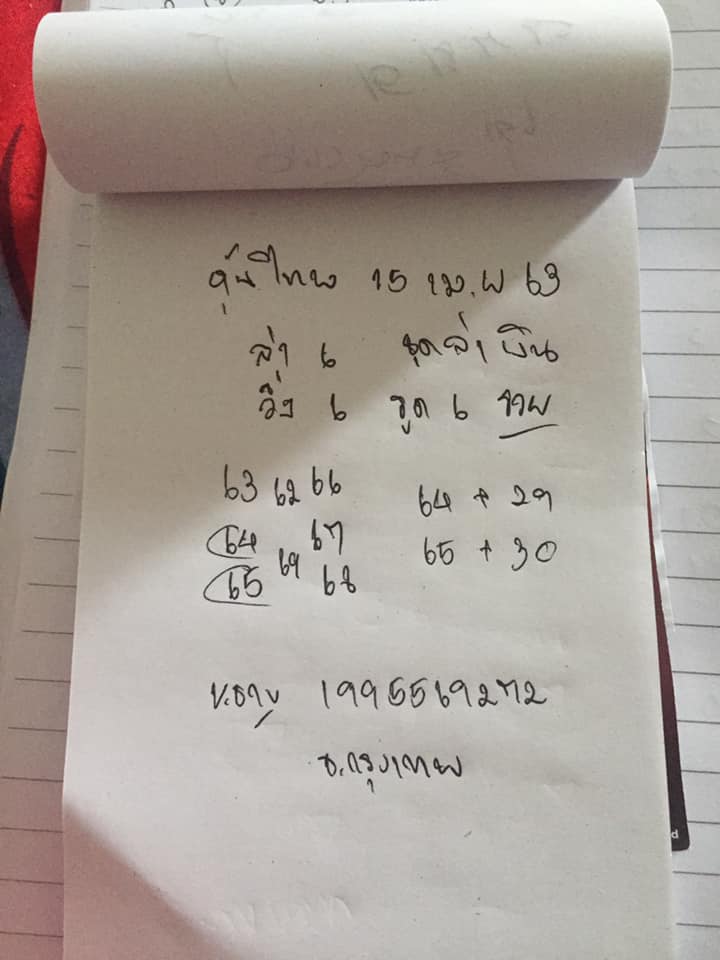 หุ้นไทย 15 เม.ย 63
ล่าง 6 ชุดล่า เงิน
วิ่ง 6 รูด 6
63 62 66
64 67 64 + 29
69
65 68 65 + 30
1995569272
ธ.กรุงเทพ